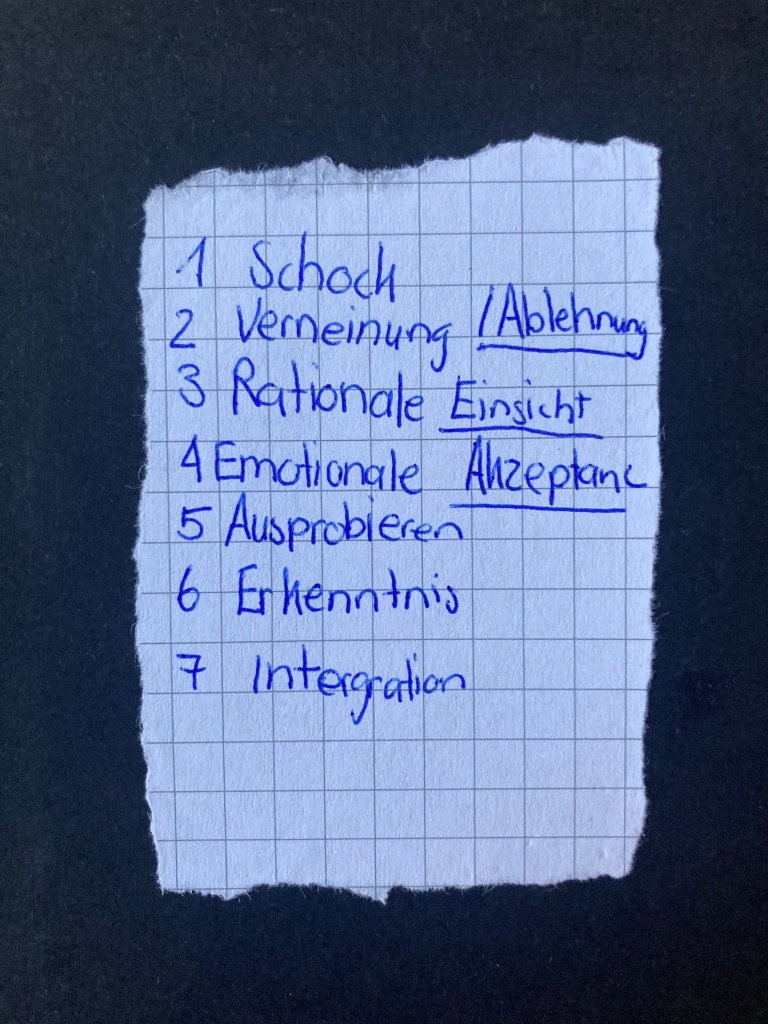 1 Schock
2 Verneinung /Ablehnung
3 Rationale Einsicht
4 Emotionale Akzeptanz
5 Ausprobieren
6 Erkenntnis
7 Intergration